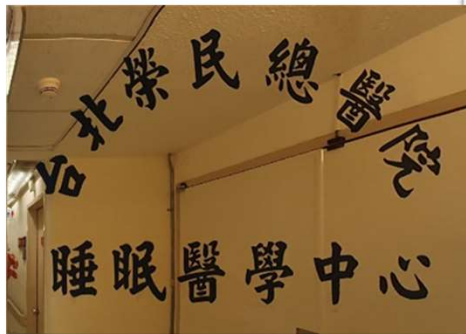 台北榮民總醫院
睡眠醫學中心